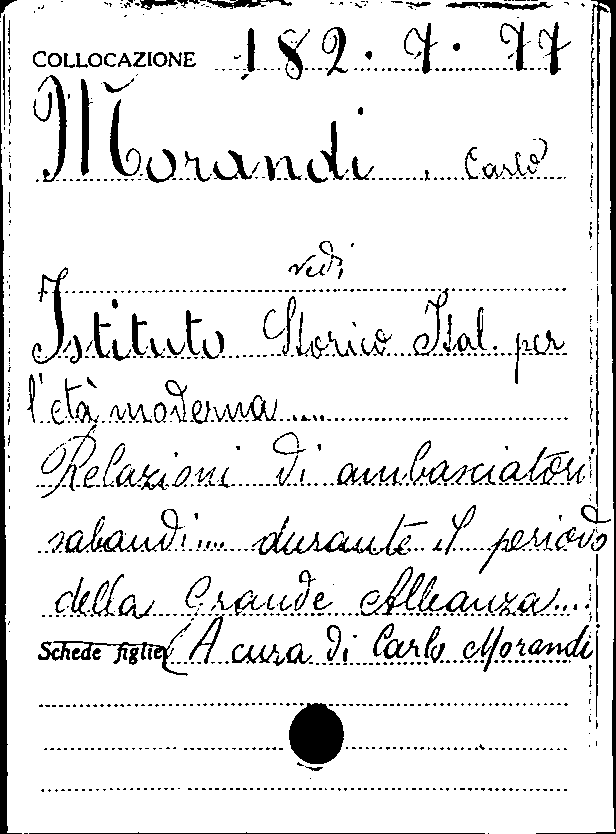 COLLOCAZIONE 182.7.77
Morandi, Carlo
vedi
Istituto Storico Ital. per
l'età moderna....
Relazioni di ambasciatori
sabaudi.... durante il periodo
della Grande Alleanza...
Schede figlie (A cura di Carlo Morandi